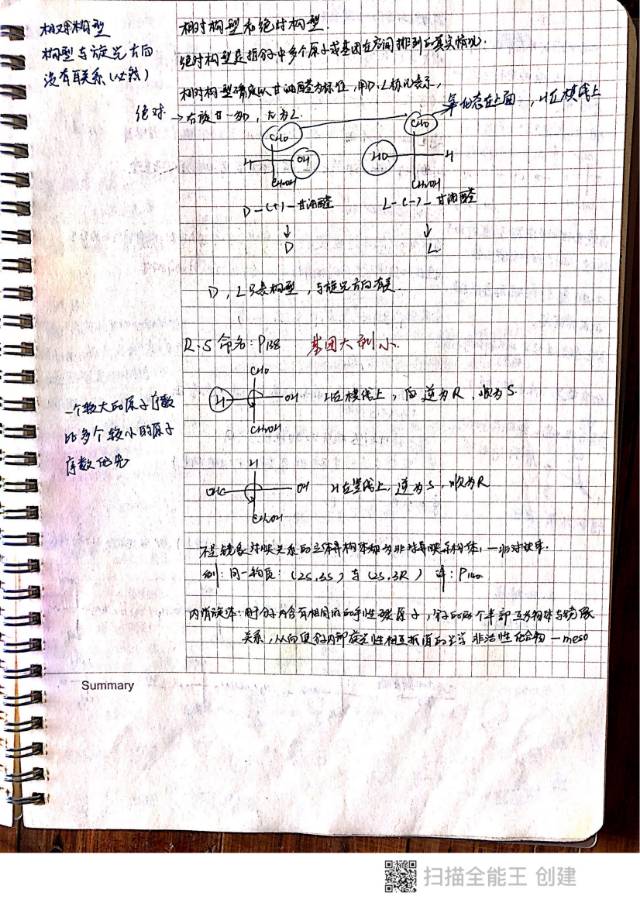 相对构型
构型与旋光方向
没有联系(必然)
相对构型和绝对构型.
绝对构型是指分子中多个原子或基团在空间排列的真实情况.
相对构型 以甘油醛为标准,用D、L标记表示,
绝对 → 右旋甘一为D,左为L.
氧化态在上面一,H在横线上
CHO
CHO
H
OH
HO
H
CH₂OH
CH₂OH
D-(+)-甘油醛
L-(-)-甘油醛
↓
↓
D
L
D,L只表构型,与旋光方向无关.
R.S命名:P138
基团大到小
CHO
H
OH
H在横线上,逆为R,顺为S.
CH₂OH
一个较大的原子序数
比多个较小的原子
序数优先
H
OHC
OH
H在竖线上,逆为S,顺为R
CH₂OH
不是镜象对映关系的立体异构体称为非对映异构体,
例:同一构造:(2S,3S)与(2S,3R)
内消旋体:由于分子内含有相同的手性碳原子,分子的两个半部互为物体与镜象
关系,从而使分子内部旋光性相互抵消的光学非活性化合物—meso
Summary
扫描全能王 创建